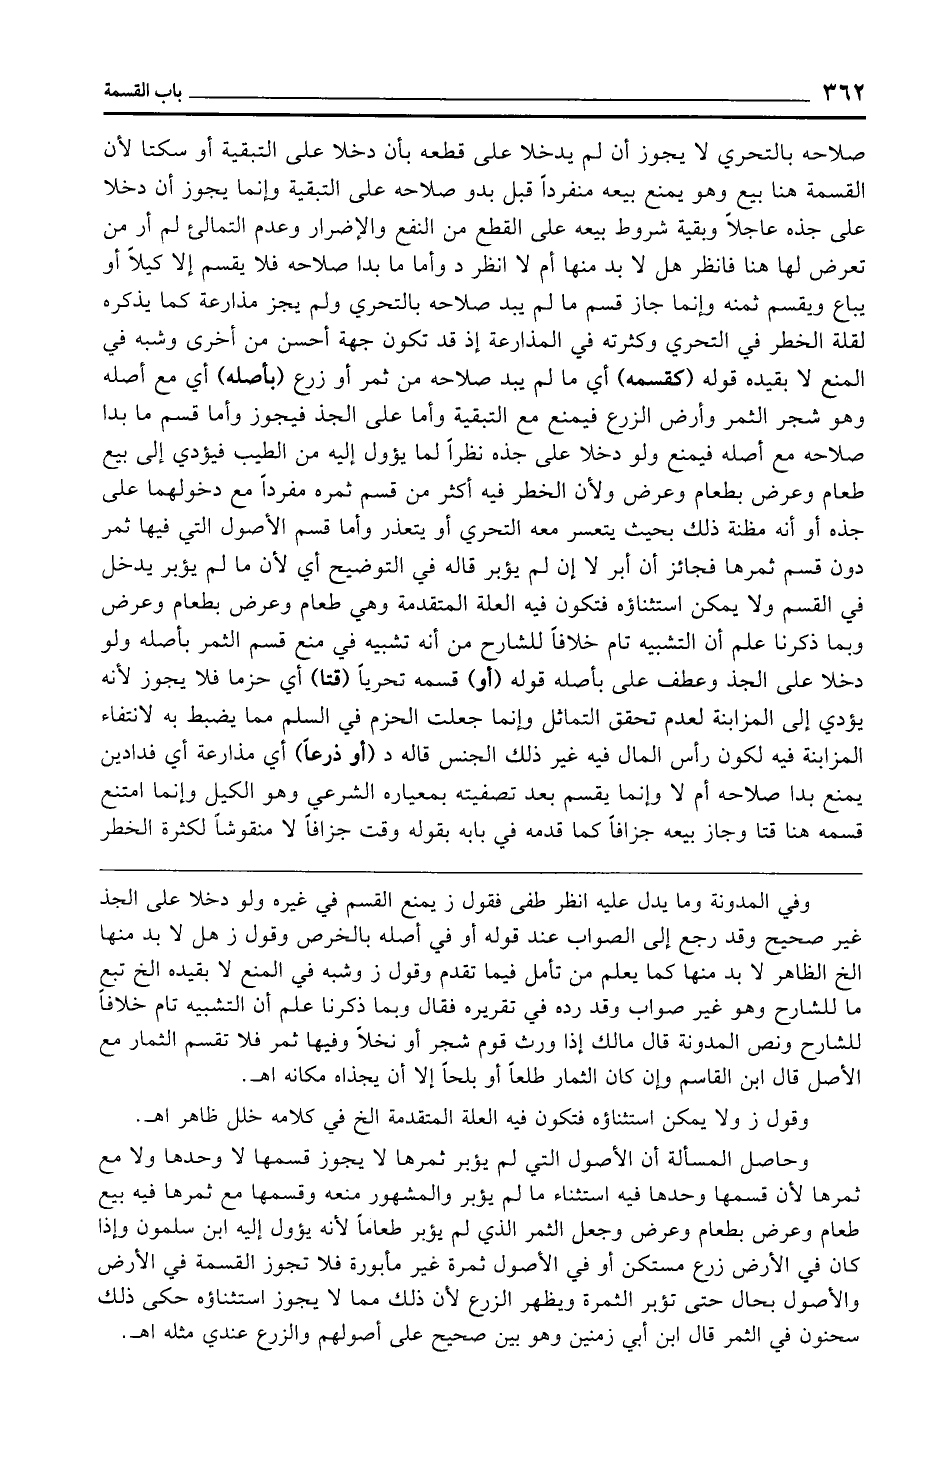 ٣٦٢ باب القسمة
صلاحه بالتحري لا يجوز أن لم يدخلا على قطعه بأن دخلا على التبقية أو سكتا لأن
القسمة هنا بيع وهو يمنع بيعه منفرداً قبل بدو صلاحه على التبقية وإنما يجوز أن دخلا
على جذه عاجلاً وبقية شروط بيعه على القطع من النفع والإضرار وعدم التمالئ لم أر من
تعرض لها هنا فانظر هل لا بد منها أم لا انظر د وأما ما بدا صلاحه فلا يقسم إلا كيلاً أو
يباع ويقسم ثمنه وإنما جاز قسم ما لم يبد صلاحه بالتحري ولم يجز مذارعة كما يذكره
لقلة الخطر في التحري وكثرته في المذارعة إذ قد تكون جهة أحسن من أخرى وشبه في
المنع لا بقيده قوله (كقسمه) أي ما لم يبد صلاحه من ثمر أو زرع (بأصله) أي مع أصله
وهو شجر الثمر وأرض الزرع فيمنع مع التبقية وأما على الجذ فيجوز وأما قسم ما بدا
صلاحه مع أصله فيمنع ولو دخلا على جذه نظراً لما يؤول إليه من الطيب فيؤدي إلى بيع
طعام وعرض بطعام وعرض ولأن الخطر فيه أكثر من قسم ثمره مفرداً مع دخولهما على
جذه أو أنه مظنة ذلك بحيث يتعسر معه التحري أو يتعذر وأما قسم الأصول التي فيها ثمر
دون قسم ثمرها فجائز أن أبر لا إن لم يؤبر قاله في التوضيح أي لأن ما لم يؤبر يدخل
في القسم ولا يمكن استثناؤه فتكون فيه العلة المتقدمة وهي طعام وعرض بطعام وعرض
وبما ذكرنا علم أن التشبيه تام خلافاً للشارح من أنه تشبيه في منع قسم الثمر بأصله ولو
دخلا على الجذ وعطف على بأصله قوله (أو) قسمه تحرياً (قتا) أي حزما فلا يجوز لأنه
يؤدي إلى المزابنة لعدم تحقق التماثل وإنما جعلت الحزم في السلم مما يضبط به لانتفاء
المزابنة فيه لكون رأس المال فيه غير ذلك الجنس قاله د (أو ذرعاً) أي مذارعة أي فدادين
يمنع بدا صلاحه أم لا وإنما يقسم بعد تصفيته بمعياره الشرعي وهو الكيل وإنما امتنع
قسمه هنا قتا وجاز بيعه جزافاً كما قدمه في بابه بقوله وقت جزافاً لا منقوشاً لكثرة الخطر
وفي المدونة وما يدل عليه انظر طفى فقول ز يمنع القسم في غيره ولو دخلا على الجذ
غير صحيح وقد رجع إلى الصواب عند قوله أو في أصله بالخرص وقول ز هل لا بد منها
الخ الظاهر لا بد منها كما يعلم من تأمل فيما تقدم وقول ز وشبه في المنع لا بقيده الخ تبع
ما للشارح وهو غير صواب وقد رده في تقريره فقال وبما ذكرنا علم أن التشبيه تام خلافاً
للشارح ونص المدونة قال مالك إذا ورث قوم شجر أو نخلاً وفيها ثمر فلا تقسم الثمار مع
الأصل قال ابن القاسم وإن كان الثمار طلعاً أو بلحاً إلا أن يجذاه مكانه اهـ.
وقول ز ولا يمكن استثناؤه فتكون فيه العلة المتقدمة الخ في كلامه خلل ظاهر اهـ.
وحاصل المسألة أن الأصول التي لم يؤبر ثمرها لا يجوز قسمها لا وحدها ولا مع
ثمرها لأن قسمها وحدها فيه استثناء ما لم يؤبر والمشهور منعه وقسمها مع ثمرها فيه بيع
طعام وعرض بطعام وعرض وجعل الثمر الذي لم يؤبر طعاماً لأنه يؤول إليه ابن سلمون وإذا
كان في الأرض زرع مستكن أو في الأصول ثمرة غير مأبورة فلا تجوز القسمة في الأرض
والأصول بحال حتى تؤبر الثمرة ويظهر الزرع لأن ذلك مما لا يجوز استثناؤه حكى ذلك
سحنون في الثمر قال ابن أبي زمنين وهو بين صحيح على أصولهم والزرع عندي مثله اهـ.